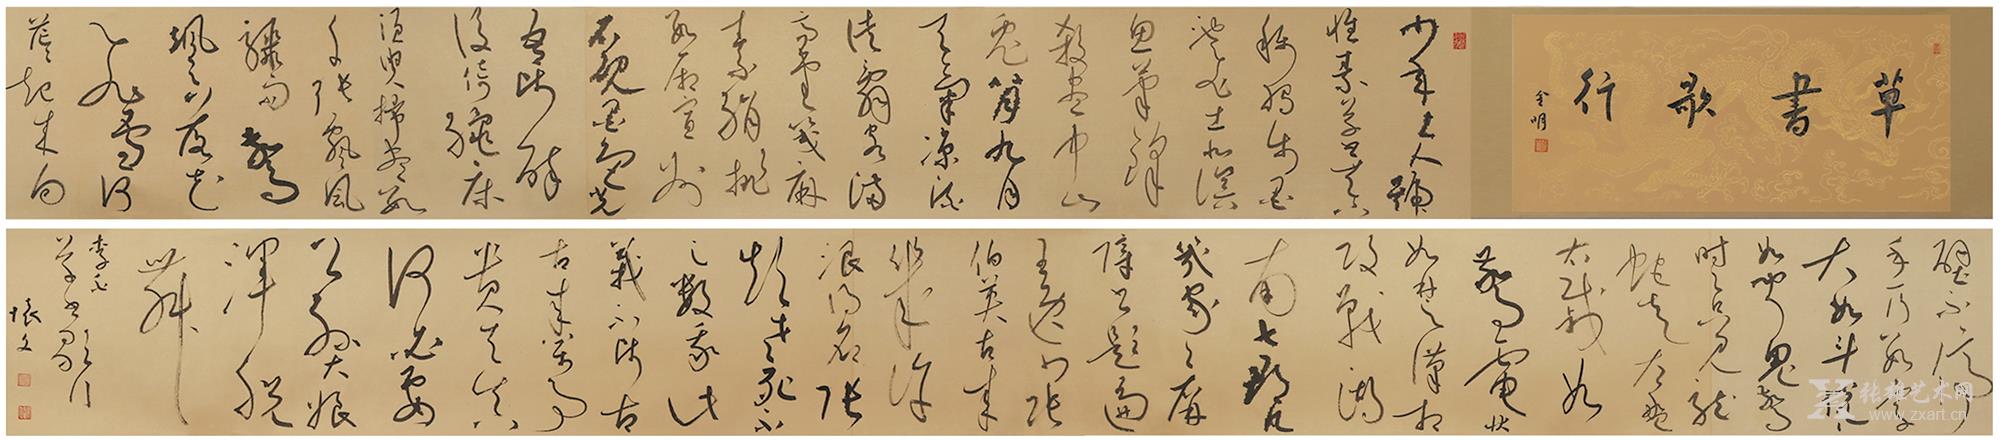 草書歌行
少年上人號
懷素草書天下
稱獨步墨
池飛出北溟
魚筆鋒
殺盡中山
兔八月九月
天氣涼酒
徒辭客滿
高堂箋麻
素絹排
數廂宣州
石硯墨色光
吾師醉
後倚繩床
須臾掃盡數
千張飄風
驟雨驚
颯颯落花
飛雪何
茫茫起來向
壁不停
手一行數字
大如斗怳怳
如聞鬼驚
時時只見龍
蛇走左盤
右蹙如
驚電狀
如楚漢相
攻戰湖
南七郡凡
幾家家屏
障書題遍
王逸少張
伯英古來
幾許
浪得名張
顛老死不
足數我師此
義不師古
古來萬事
貴天生
何必要
公孫大娘
渾脫
舞
李白
草書歌行
张雄艺术网
www.zxart.cn